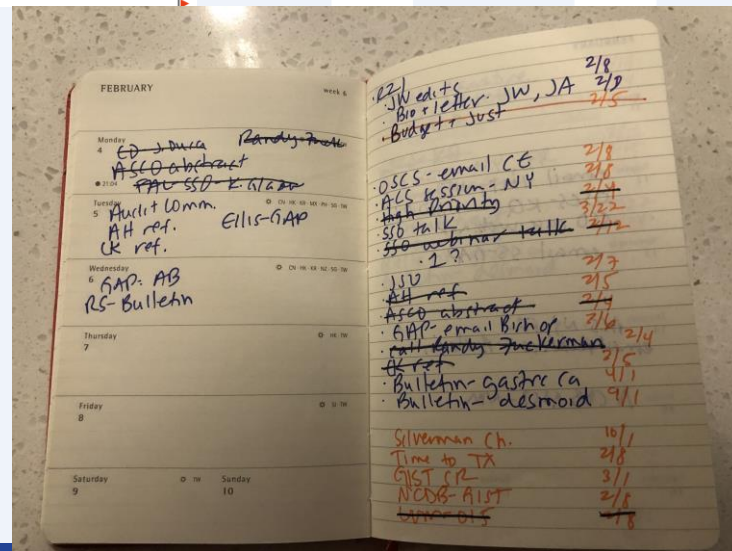 FEBRUARY week 6
Monday
4 ED-J. Duca Randy
ASCO abstract
21:04 SSO-K.
Tuesday
5 Audit Comm. CN · HK · KR · MY · PH · SG · TW
AH ref. Ellis-GAP
CK ref.
Wednesday CN · HK · KR · NZ · SG · TW
6 GAP: AB
RS-Bulletin
Thursday HK · TW
7
Friday
8
Saturday TW Sunday
9 10
· R21 2/8
· JW edits 2/8
· Bio + letter. JW, JA
· Budget + Just 2/5
· OSCS-email CE 2/8
· ACS session-NY 2/8
High Priority 2/4
· SSO talk 3/22
· SSO webinar talk 2/12
· 1?
· JSO 2/7
· AH ref 2/5
· ASCO abstract 2/4
· GAP-email Bishop 2/6
· call Randy Zuckerman 2/4
· CK ref 2/5
· Bulletin-gastric ca 4/1
· Bulletin-desmoid 9/1
Silverman Ch. 10/1
Time to TX 2/8
GIST CR 3/1
NCDB-RIST 2/8
2/8